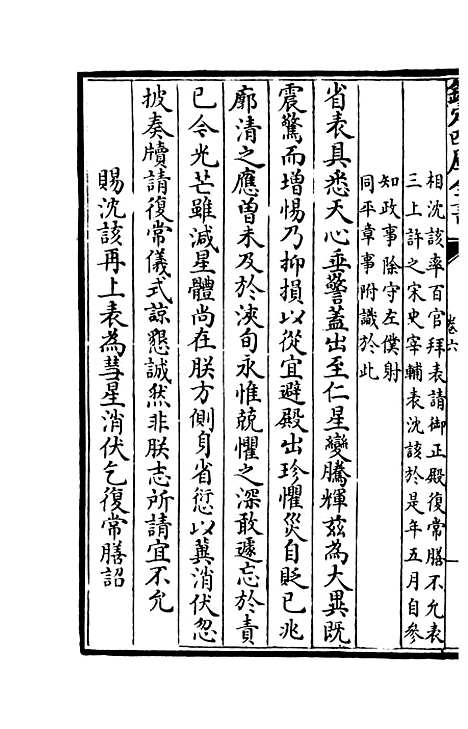 欽定四庫全書
卷六
相沈該率百官拜表請御正殿復常膳不允表
三上許之宋史宰輔表沈該於是年五月自參
知政事除守左僕射
同平章事附識於此
省表具悉天心垂警蓋出至仁星變騰輝茲為大異既
震驚而增惕乃抑損以從宜避殿出珍懼災自貶已兆
廓清之應曾未及於浹旬永惟兢懼之深敢遽忘於責
己今光芒雖減星體尚在朕方側身省愆以冀消伏忽
披奏牘請復常儀式諒懇誠然非朕志所請宜不允
賜沈該再上表為彗星消伏乞復常膳詔